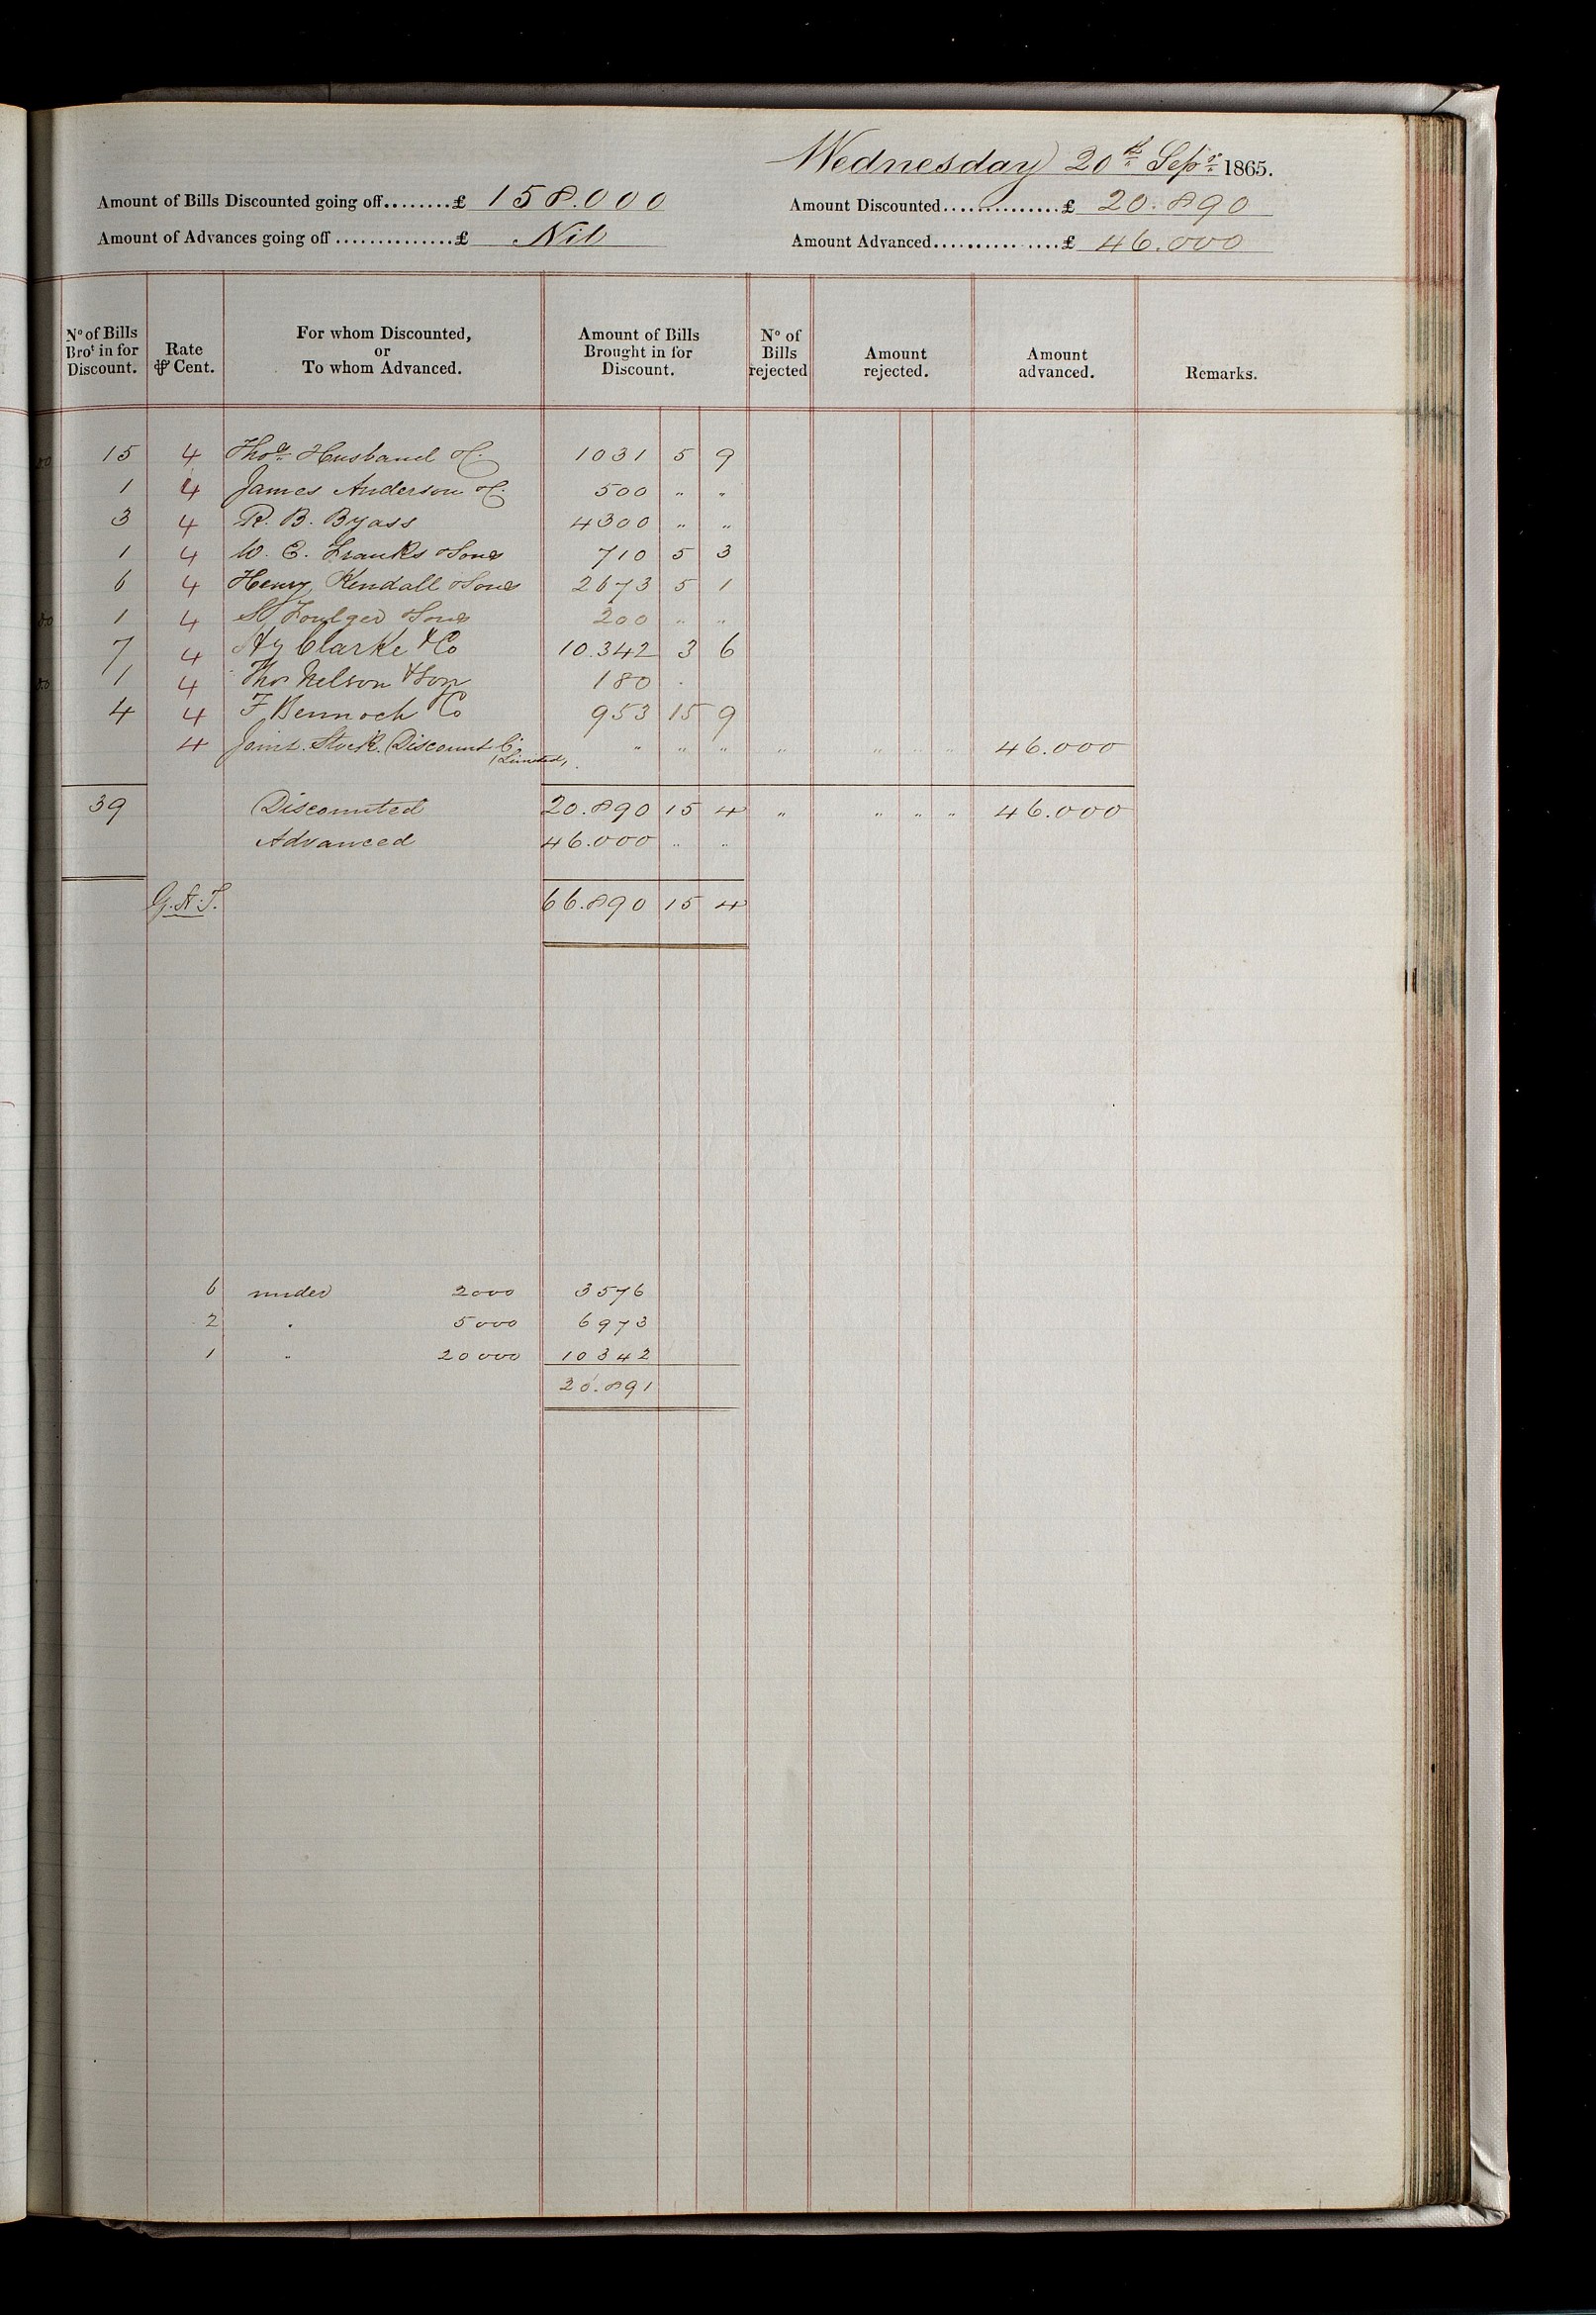 Wednesday 20th Sepr 1865.
Amount of Bills Discounted going off........£ 158.000
Amount Discounted..............£ 20.890
Amount of Advances going off..............£ Nil
Amount Advanced..............£ 46.000
No of Bills Brot in for Discount.
Rate ⅌ Cent.
For whom Discounted, or To whom Advanced.
Amount of Bills Brought in for Discount.
No of Bills rejected
Amount rejected.
Amount advanced.
Remarks.
15 4 Thos Husband & Co. 1031 5 9
1 4 James Anderson & Co. 500 " "
3 4 R. B. Byass 4300 " "
1 4 W. C. Franks & Sons 710 5 3
6 4 Henry Kendall & Sons 2673 5 1
1 4 S Foulger & Sons 200 " "
7 4 Hy Clarke & Co 10.342 3 6
1 4 Thos Nelson & Son 180 .
4 4 F Bennoch & Co 953 15 9
4 Joint Stock Discount Co " " " " " " " 46.000
(Limited).
39 Discounted 20.890 15 4 " " " " 46.000
Advanced 46.000 " "
G.A.T. 66.890 15 4
6 under 2000 3576
2 " 5000 6973
1 " 20000 10342
20.891